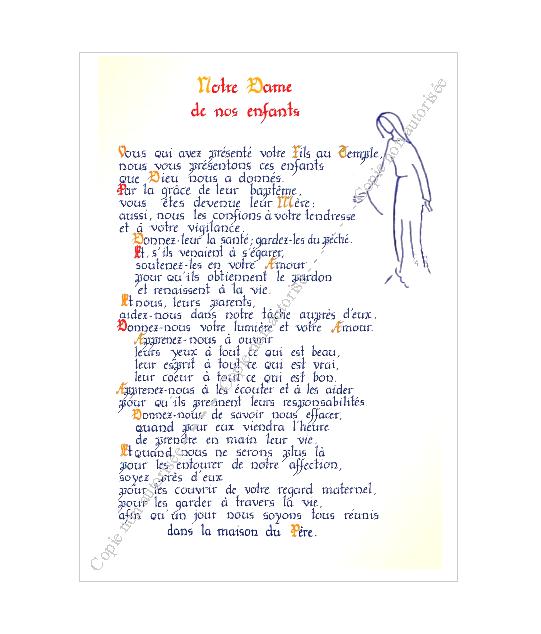 Notre Dame
de nos enfants
Vous qui avez présenté votre Fils au Temple,
nous vous présentons ces enfants
que Dieu nous a donnés.
Par la grâce de leur baptême,
vous êtes devenue leur Mère :
aussi, nous les confions à votre tendresse
et à votre vigilance.
Donnez-leur la santé; gardez-les du péché.
Et, s'ils venaient à s'égarer,
soutenez-les en votre Amour
pour qu'ils obtiennent le pardon
et renaissent à la vie.
Et nous, leurs parents,
aidez-nous dans notre tâche auprès d'eux.
Donnez-nous votre lumière et votre Amour.
Apprenez-nous à ouvrir
leurs yeux à tout ce qui est beau,
leur esprit à tout ce qui est vrai,
leur coeur à tout ce qui est bon.
Apprenez-nous à les écouter et à les aider
pour qu'ils prennent leurs responsabilités.
Donnez-nous de savoir nous effacer,
quand pour eux viendra l'heure
de prendre en main leur vie.
Et quand nous ne serons plus là
pour les entourer de notre affection,
soyez près d'eux
pour les couvrir de votre regard maternel,
pour les garder à travers la vie,
afin qu'un jour nous soyons tous réunis
dans la maison du Père.
Copie non autorisée - Copie non autorisée - Copie non autorisée